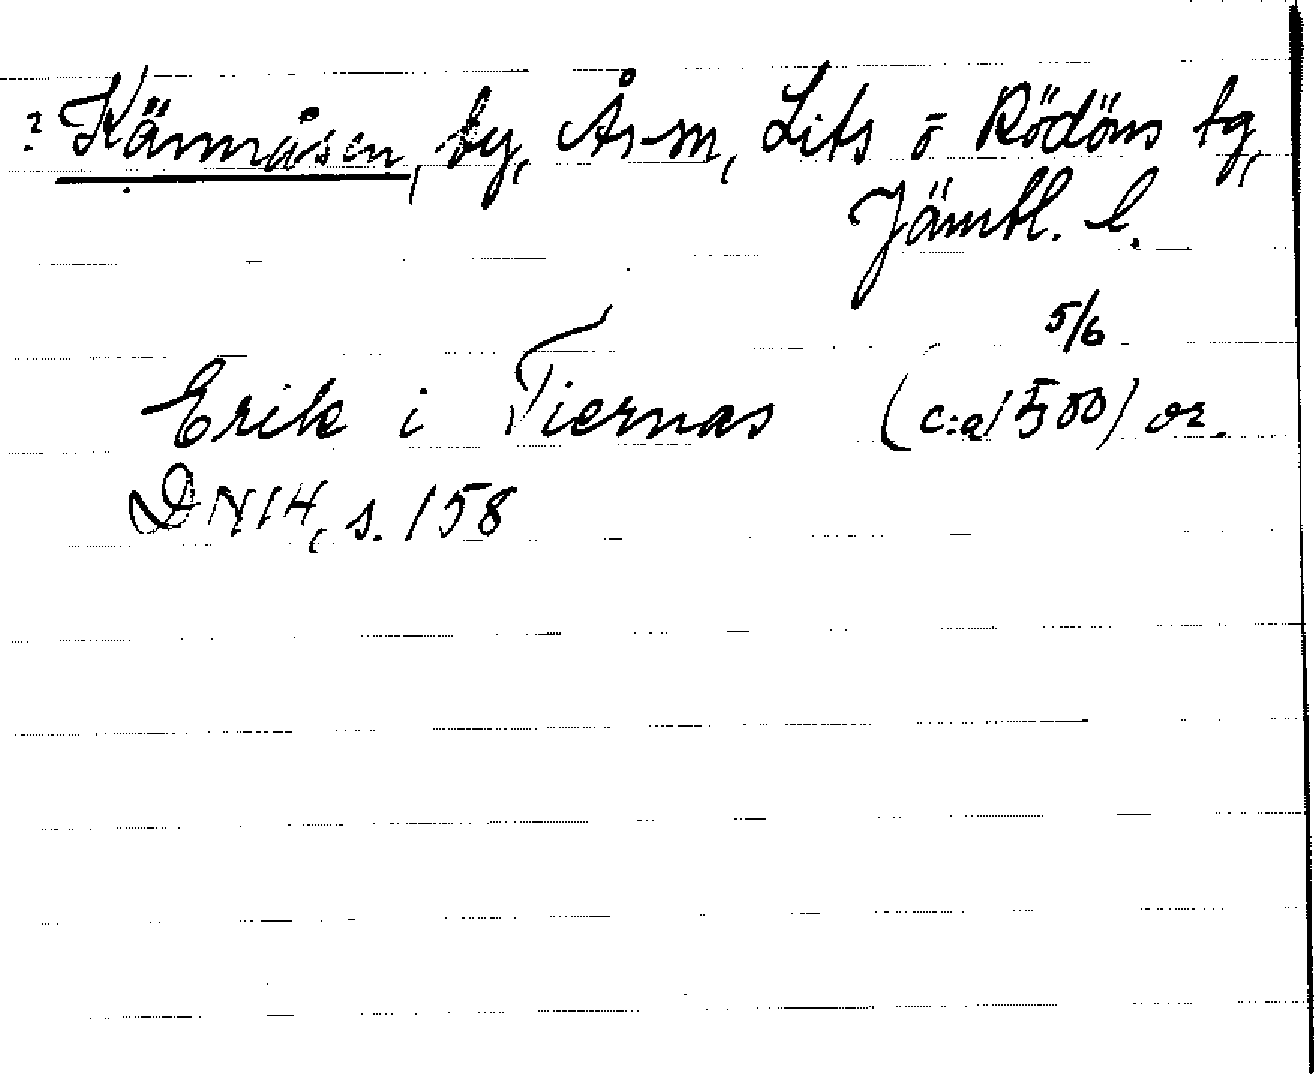 ? Kännåsen, by, Ås sn, Lits o Rödöns tg,
Jämtl. l.
5/6
Erik i Tiernas (c:a 1500) or.
DN 14, s. 158